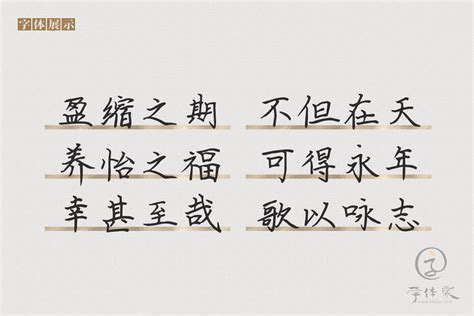 字体展示
盈缩之期 不但在天
养怡之福 可得永年
幸甚至哉 歌以咏志
字体家